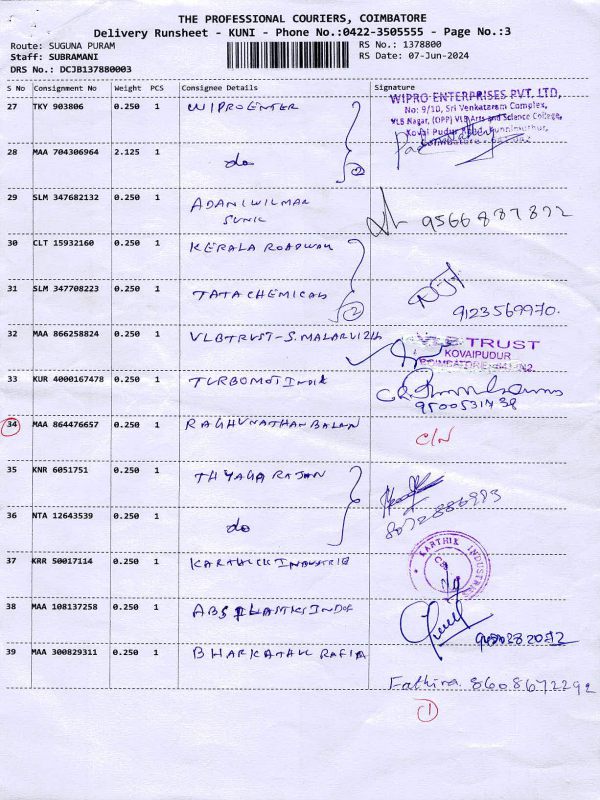 THE PROFESSIONAL COURIERS, COIMBATORE
Delivery Runsheet - KUNI - Phone No.:0422-3505555 - Page No.:3
Route: SUGUNA PURAM RS No.: 1378800
Staff: SUBRAMANI RS Date: 07-Jun-2024
DRS No.: DCJB137880003
S No Consignment No Weight PCS Consignee Details Signature
27 TKY 903806 0.250 1 WIPRO ENTER
WIPRO ENTERPRISES PVT. LTD,
No: 9/10, Sri Venkataram Complex,
VLB Nagar, (OPP) VLB Arts and Science College,
28 MAA 704306964 2.125 1 do 2
29 SLM 347682132 0.250 1 ADANI WILMAR
SUNIL
30 CLT 15932160 0.250 1 KERALA ROADWAY
31 SLM 347708223 0.250 1 TATA CHEMICALS 2 9123569970.
32 MAA 866258824 0.250 1 VLB TRUST - S. MALARVIZH
VLB TRUST
KOVAIPUDUR
33 KUR 4000167478 0.250 1 TURBOMOT INDIA
34 MAA 864476657 0.250 1 RAGHUNATHAN BALAN C/N
35 KNR 6051751 0.250 1 THYAGARAJAN
36 NTA 12643539 0.250 1 do
37 KRR 50017114 0.250 1 KARTHICK INDUSTRIE
KARTHIK INDUSTRIES
38 MAA 108137258 0.250 1 ABS PLASTKS INDUS
39 MAA 300829311 0.250 1 BHARKATHUL RAFIA
Fathira 8608672292
1